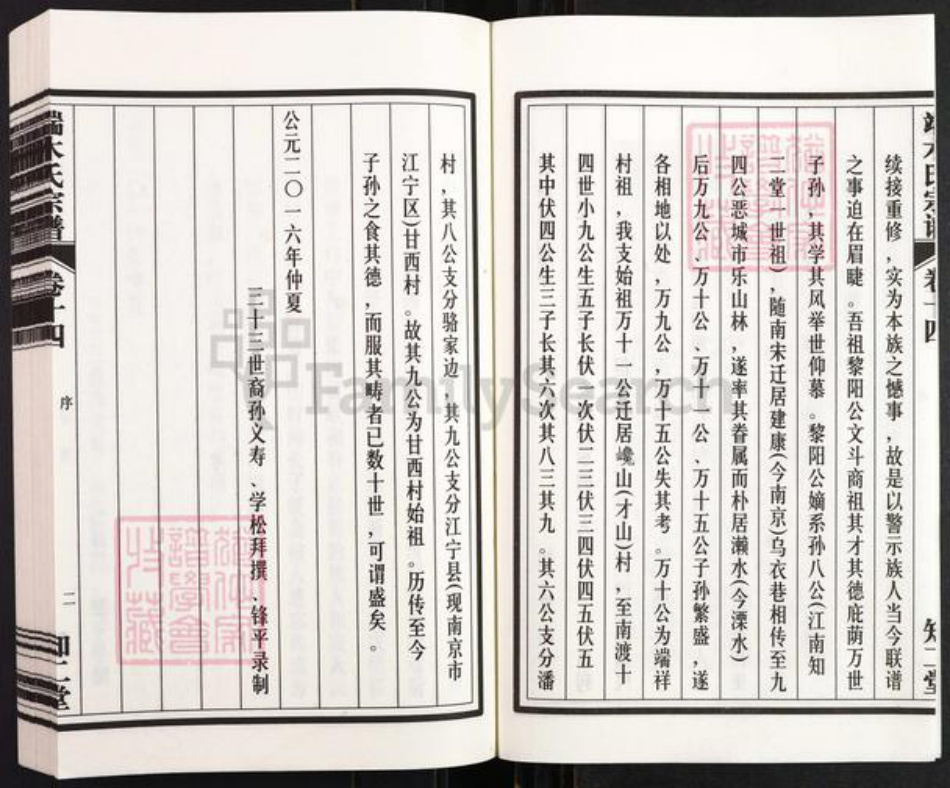 续接重修，实为本族之憾事，故是以警示族人当今联谱
之事迫在眉睫。吾祖黎阳公文斗商祖其才其德庇荫万世
子孙，其学其风举世仰慕。黎阳公嫡系孙八公(江南知
二堂一世祖)，随南宋迁居建康(今南京)乌衣巷相传至九
四公恶城市乐山林，遂率其眷属而朴居濑水(今溧水)
后万九公、万十公、万十一公、万十五公子孙繁盛，遂
各相地以处，万九公，万十五公失其考。万十公为端祥
村祖，我支始祖万十一公迁居巉山(才山)村，至南渡十
四世小九公生五子长伏一次伏二三伏三四伏四五伏五
其中伏四公生三子长其六次其八三其九。其六公支分潘
村，其八公支分骆家边，其九公支分江宁县(现南京市
江宁区)甘西村。故其九公为甘西村始祖。历传至今
子孙之食其德，而服其畴者已数十世，可谓盛矣。
公元二〇一六年仲夏
三十三世裔孙义寿、学松拜撰、锋平录制
端木氏宗谱
卷十四
序
二
知二堂
端木氏宗谱
卷十四
知二堂
FamilySearch